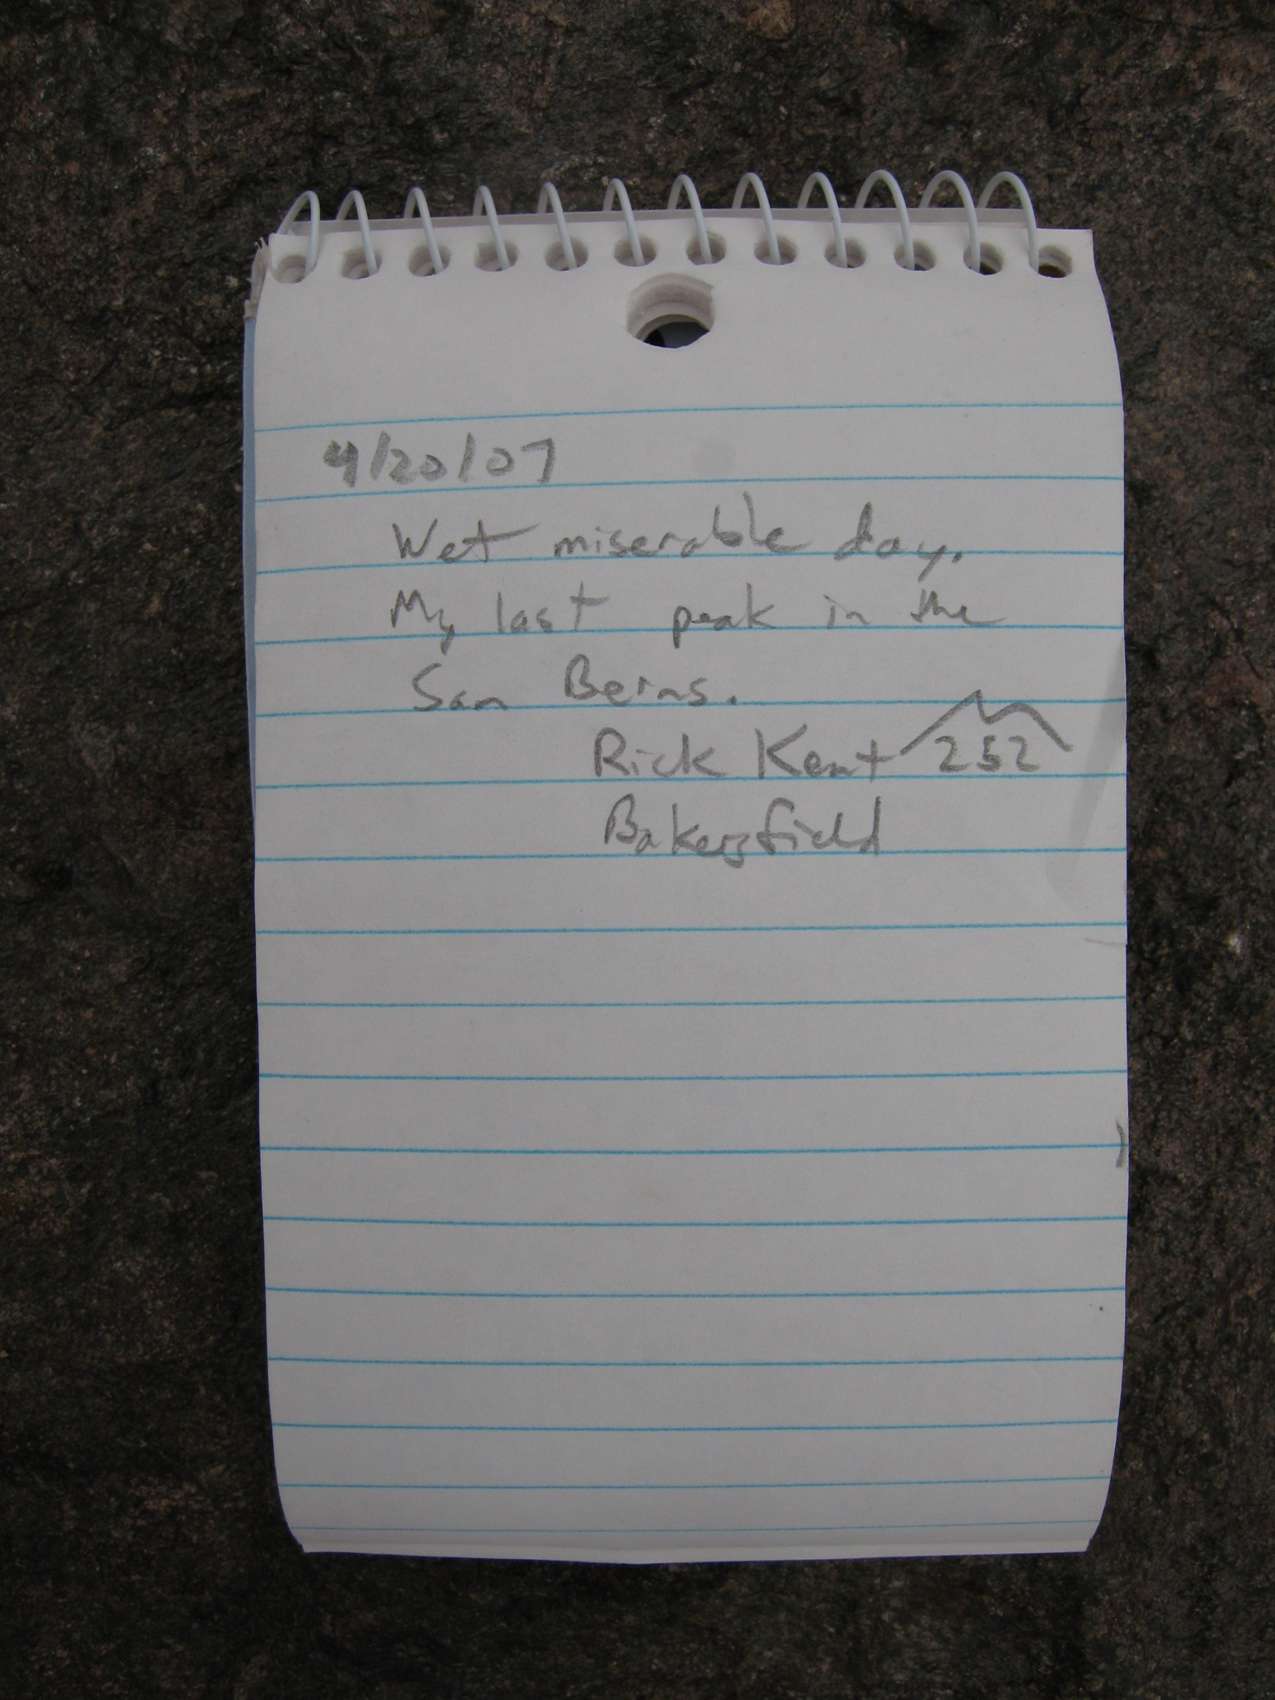 4/20/07
Wet miserable day.
My last peak in the
San Berns.
Rick Kent 252
Bakersfield